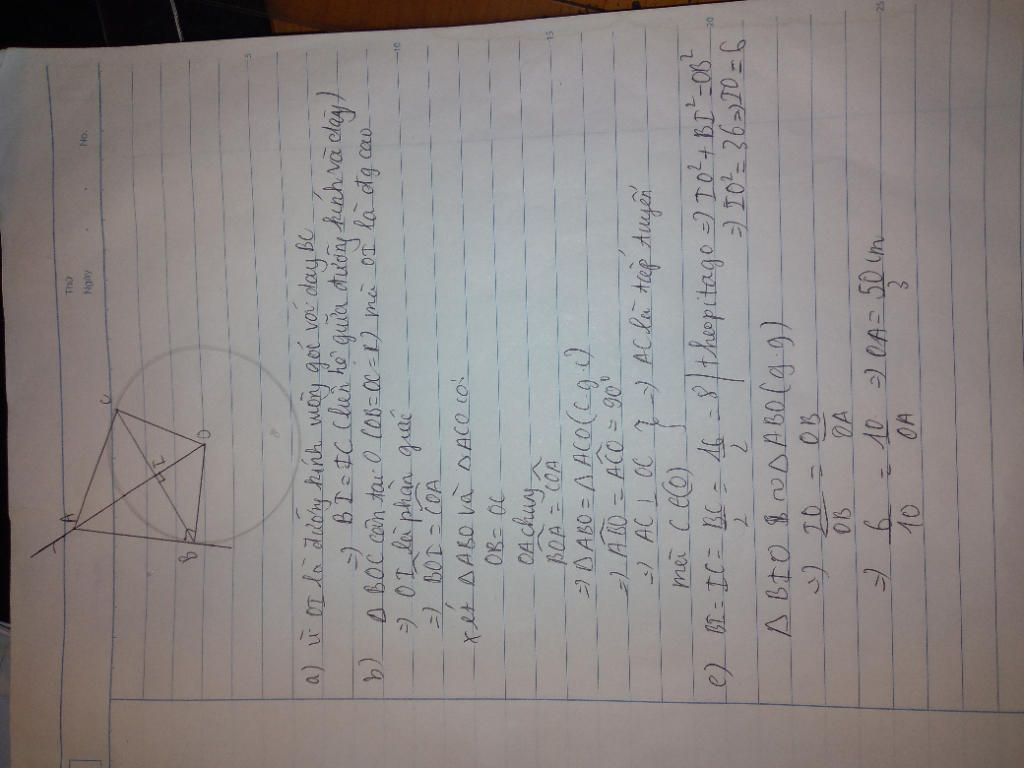 Thứ
Ngày
No.
A
C
I
B
O
a) vì OI là đường kính vuông góc với dây BC
=> BI = IC (liên hệ giữa đường kính và dây)
b) Δ BOC cân tại O (OB = OC = R) mà OI là đg cao
=> OI là phân giác
=> BOI = COA
xét Δ ABO và Δ ACO có:
OB = OC
OA chung
BOA = COA
=> Δ ABO = Δ ACO (c.g.c)
=> ABO = ACO = 90°
=> AC ⊥ OC } => AC là tiếp tuyến
mà C ∈ (O)
c) BI = IC = BC/2 = 16/2 = 8 (theo pitago => IO² + BI² = OB²
=> IO² = 36 => IO = 6
Δ BIO ∽ Δ ABO (g.g)
=> IO/OB = OB/OA
=> 6/10 = 10/OA => OA = 50/3 cm
5
10
15
20
25